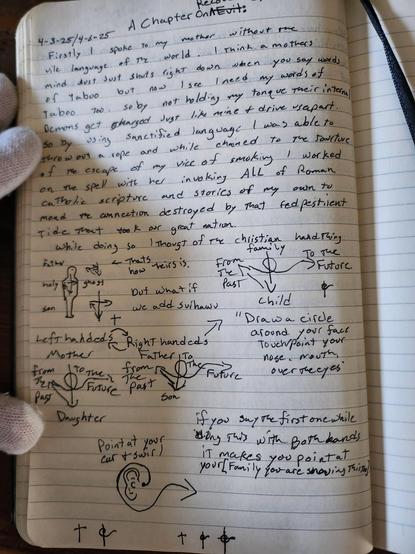 Reco
A Chapter On
4-3-25/4-6-25
Firstly I spoke to my mother without the
vile language of the world. I think a mothers
mind just just shuts right down when you say words
of Taboo but now I see I need my words of
Taboo too. so by not holding my tongue their internal
Demons get charged Just like mine & drive us apart
so by using sanctified language I was able to
throw out a rope and while chained to the
of the escape of my vice of smoking I worked
on the spell with her invoking ALL of Roman
catholic scripture and stories of my own to
mend the connection destroyed by that fed pestilent
Tide that took our great nation.
While doing so I thougt of the christian hand thing
Father
holy ghost
son
← Thats
how theirs is.
But what if
we add
family
From
The
Past
To the
Future
child
Left handeds
Right handeds
Mother
Father
from
The
Past
to The
Future
Daughter
from
The
Past
To
The
Future
Son
"Draw a circle
around your face
Touch/point your
nose, mouth,
over the eyes
if you say the first one while
This with Both hands
it makes you point at
your [Family you are
Point at your
ear & swirl